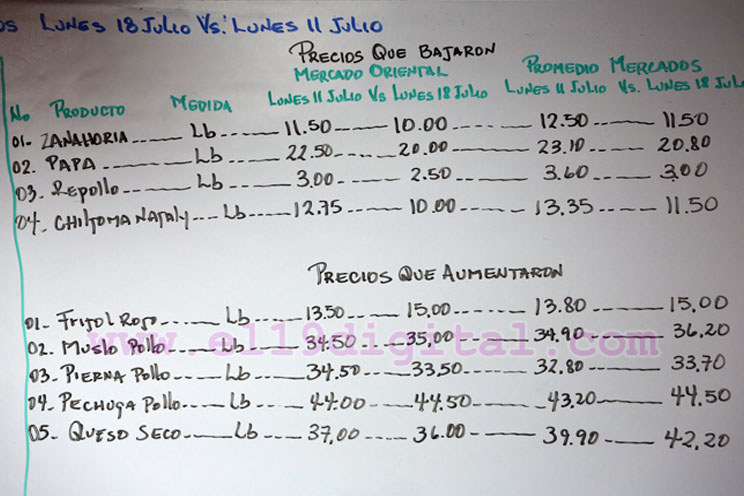 OS LUNES 18 JULIO VS. LUNES 11 JULIO
PRECIOS QUE BAJARON
MERCADO ORIENTAL PROMEDIO MERCADOS
No PRODUCTO MEDIDA LUNES 11 JULIO VS LUNES 18 JULIO LUNES 11 JULIO VS. LUNES 18 JULIO
01- ZANAHORIA Lb 11.50 10.00 12.50 11.50
02. PAPA Lb 22.50 20.00 23.10 20.80
03. Repollo Lb 3.00 2.50 3.60 3.00
04. CHILTOMA NATALY Lb 12.75 10.00 13.35 11.50
PRECIOS QUE AUMENTARON
01- Frijol Rojo Lb 13.50 15.00 13.80 15.00
www.el19digital.com
02. Muslo Pollo Lb 34.50 35.00 34.90 36.20
03. PIERNA POLLO Lb 34.50 33.50 32.80 33.70
04. PECHUGA POLLO Lb 44.00 44.50 43.20 44.50
05- QUESO SECO Lb 37.00 36.00 39.90 42.20